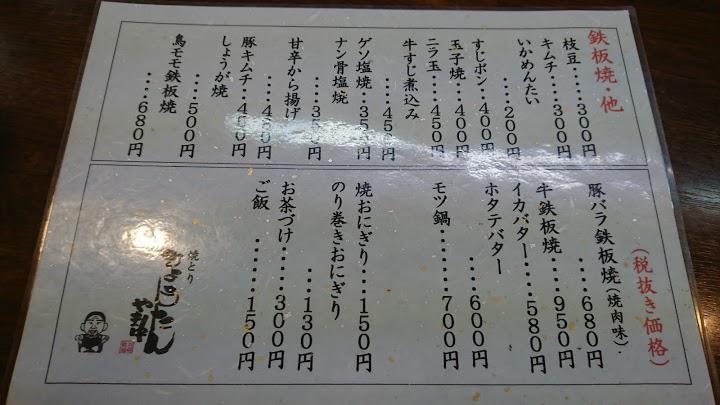 鉄板焼・他
枝豆‥‥300円
キムチ‥‥300円
いかめんたい
‥‥200円
すじポン‥‥400円
玉子焼‥‥400円
ニラ玉‥‥450円
牛すじ煮込み
‥‥450円
ゲソ塩焼‥350円
ナン骨塩焼
‥‥350円
甘辛から揚げ
‥‥450円
豚キムチ‥450円
しょうが焼
‥‥500円
鳥モモ鉄板焼
‥‥680円
(税抜き価格)
豚バラ鉄板焼(焼肉味)・
‥‥680円
牛鉄板焼‥‥950円
イカバター‥‥580円
ホタテバター
‥‥600円
モツ鍋‥‥‥700円
焼おにぎり‥‥150円
のり巻きおにぎり
‥‥130円
お茶づけ‥‥300円
ご飯‥‥‥150円
焼とり